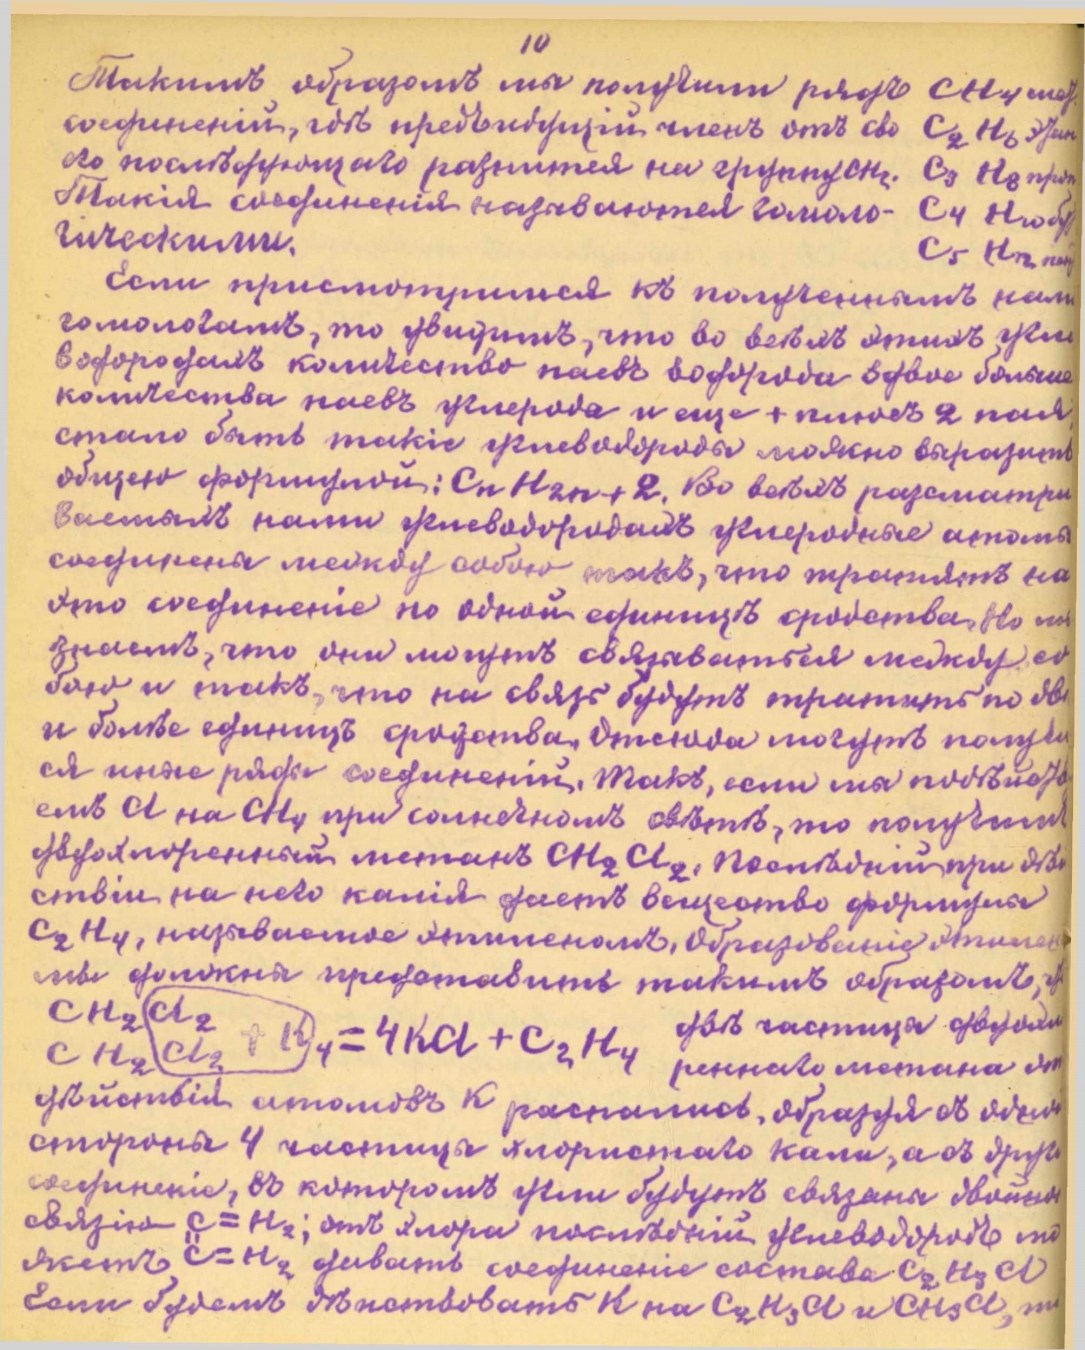 10
Такимъ образомъ мы получили рядъ CH4 мет.
соединеній, гдѣ предъидущій членъ отъ сво C2 H6 этан
его послѣдующаго разнится на группу CH2. C3 H8 проп
Такія соединенія называются гомоло- C4 H10 бут
гическими. C5 H12 пен
Если присмотримся къ полученнымъ нами
гомологамъ, то увидимъ, что во всѣхъ этихъ угле
водородахъ количество паевъ водорода вдвое больше
количества паевъ углерода и еще + плюсъ 2 пая,
стало быть такіе углеводороды можно выразить
общею формулой: Cn H2n+2. Во всѣхъ разсматри
ваемыхъ нами углеводородахъ углеродные атомы
соединены между собою такъ, что тратятъ на
это соединеніе по одной единицѣ сродства. Но мы
знаемъ, что они могутъ связываться между со
бою и такъ, что на связь будутъ тратить по двѣ
и болѣе единицъ сродства. Отсюда могутъ получи
ся иные ряды соединеній. Такъ, если мы подѣйству
емъ Cl на CH4 при солнечномъ свѣтѣ, то получимъ
двухлоренный метанъ CH2Cl2. Послѣдній при дѣй
ствіи на него калія даетъ вещество формулы
C2H4, называемое этиленомъ. Образованіе этилен
мы должны представить такимъ образомъ, ч
CH2 Cl2 + K4 = 4KCl + C2H4 двѣ частицы двухло
CH2 Cl2 реннаго метана от
дѣйствія атомовъ K распались, образуя съ одной
стороны 4 частицы хлористаго кали, а съ друго
соединеніе, въ которомъ угли будутъ связаны двойной
связью C=H2; отъ хлора послѣдній углеводородъ мо
жетъ C=H2 давать соединеніе состава C2H3Cl
Если будемъ дѣйствовать K на C2H3Cl и CH3Cl, то